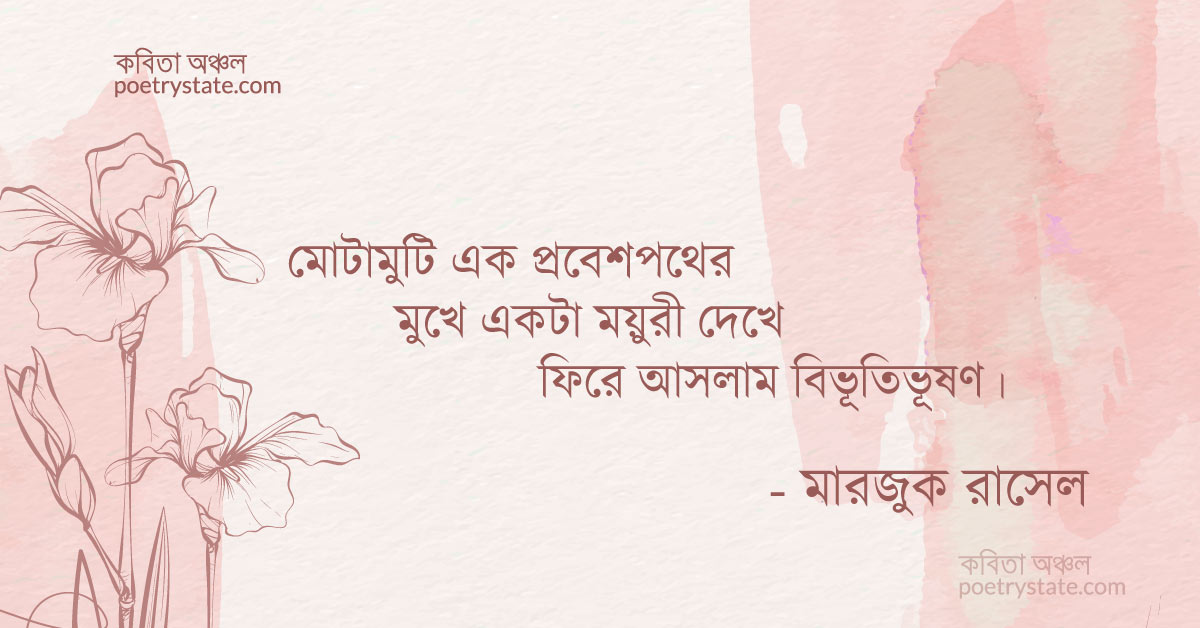 কবিতা অঞ্চল
poetrystate.com
মোটামুটি এক প্রবেশপথের
মুখে একটা ময়ুরী দেখে
ফিরে আসলাম বিভূতিভূষণ।
- মারজুক রাসেল
কবিতা অঞ্চল
poetrystate.com